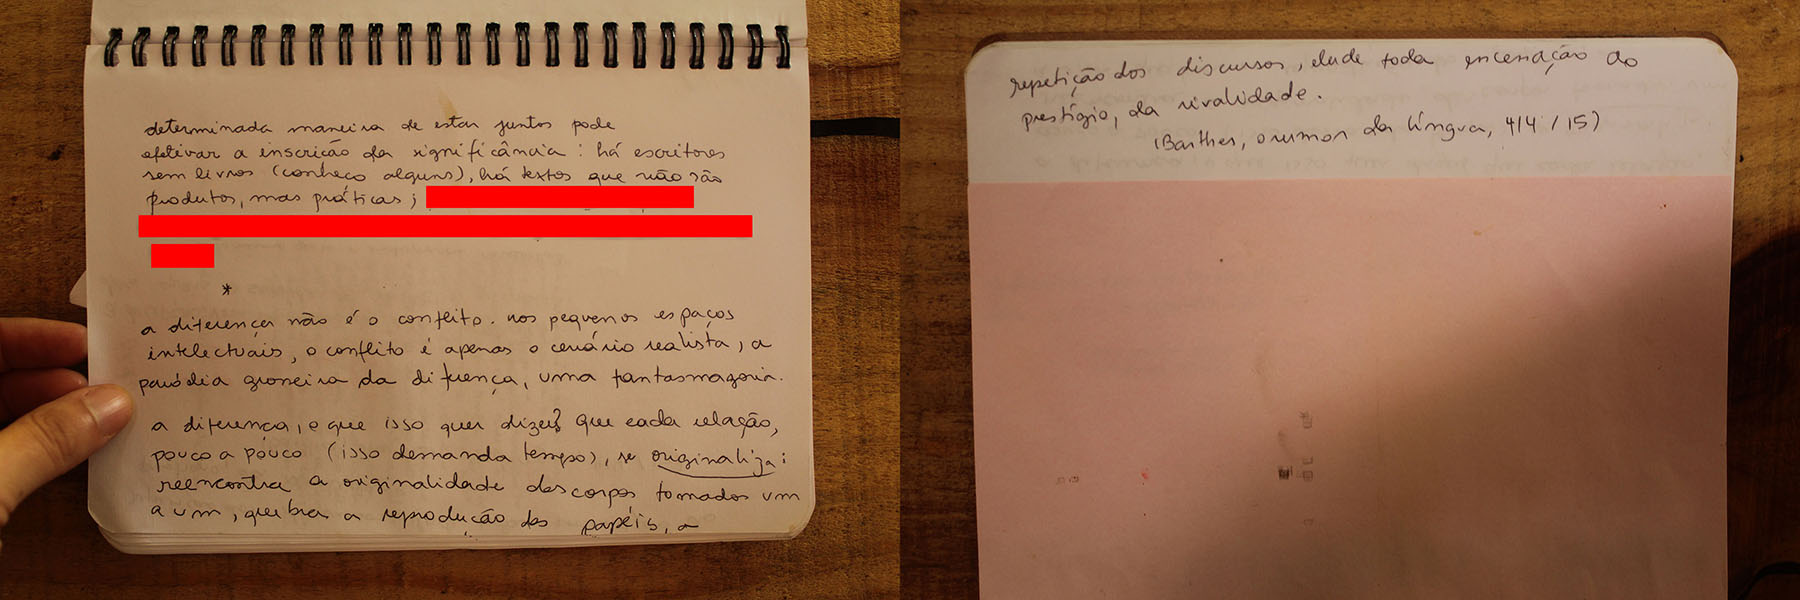 determinada maneira de estar juntos pode
efetivar a inscrição da significância: há escritores
sem livros (conheço alguns), há textos que não são
produtos, mas práticas;
*
a diferença não é o conflito. nos pequenos espaços
intelectuais, o conflito é apenas o cenário realista, a
paródia grosseira da diferença, uma fantasmagoria.
a diferença, o que isso quer dizer? que cada relação,
pouco a pouco (isso demanda tempo), se originaliza:
reencontra a originalidade dos corpos tomados um
a um, quebra a reprodução dos papéis, a
repetição dos discursos, elude toda encenação do
prestígio, da rivalidade.
(Barthes, o rumor da língua, 4/4/15)